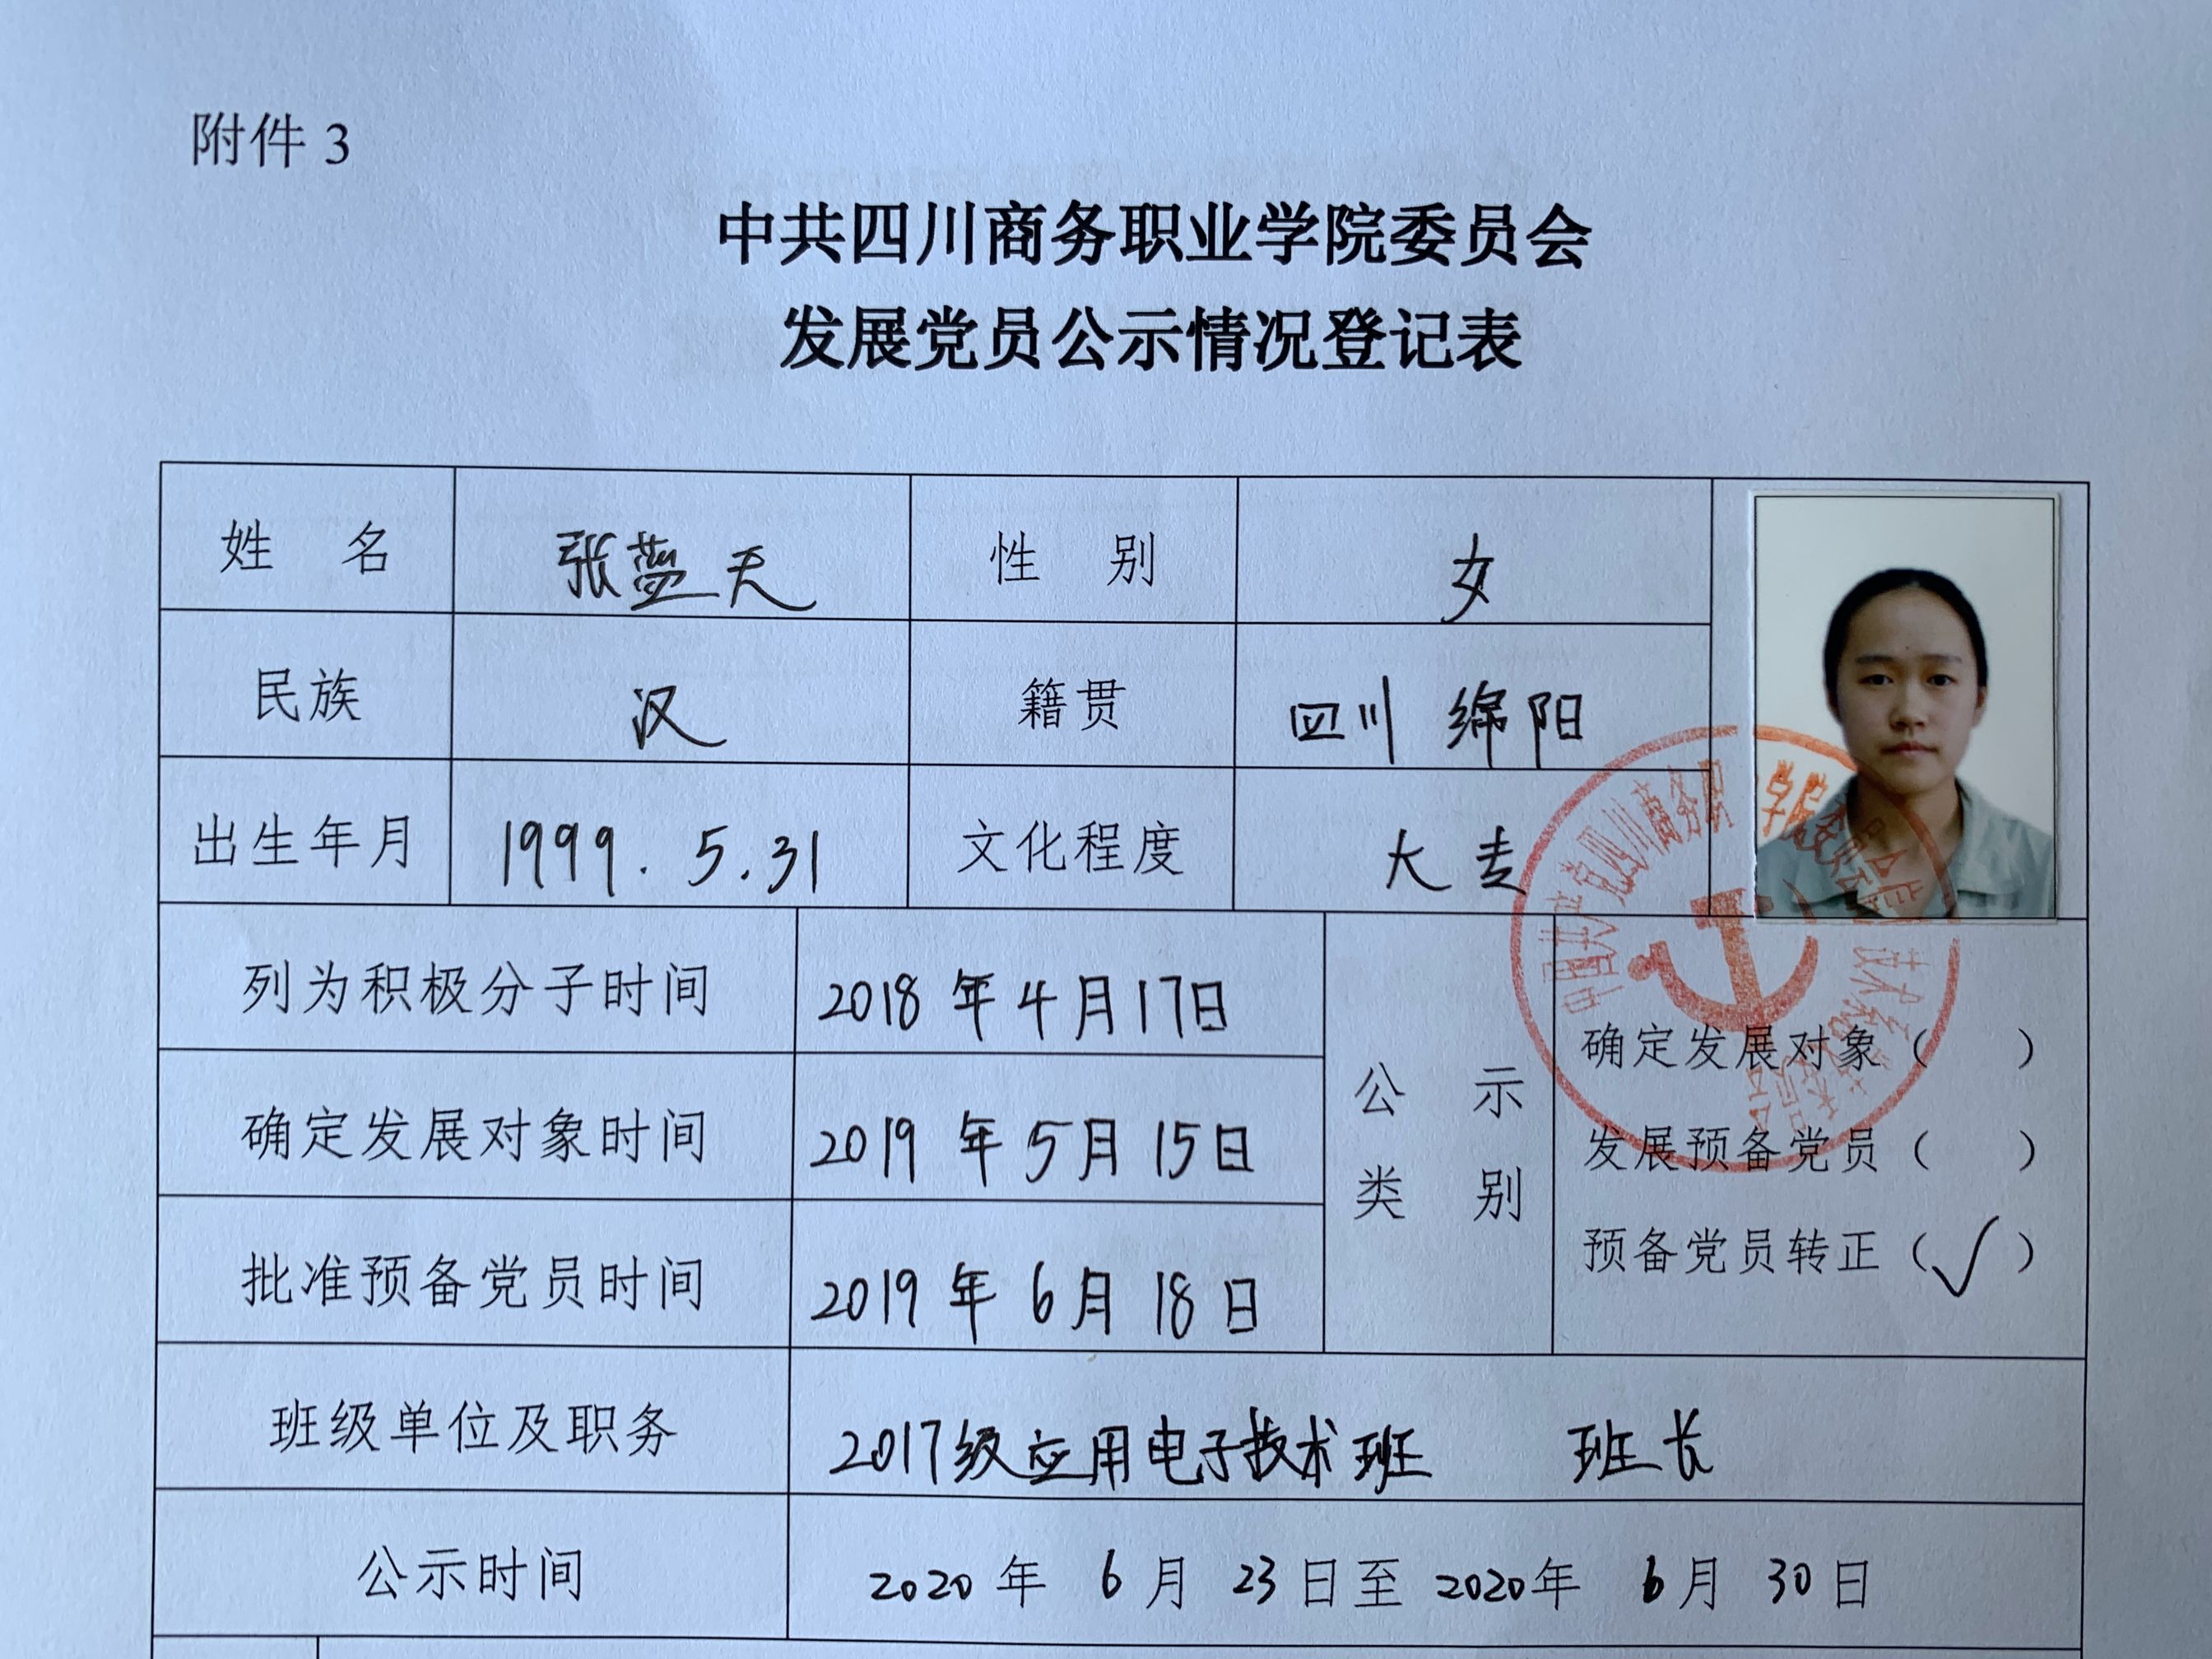 附件 3
中共四川商务职业学院委员会
发展党员公示情况登记表
姓 名 张蓝天 性 别 女
民族 汉 籍贯 四川 绵阳
出生年月 1999.5.31 文化程度 大专
列为积极分子时间 2018年4月17日
确定发展对象时间 2019年5月15日
批准预备党员时间 2019年6月18日
公 示
类 别
确定发展对象（ ）
发展预备党员（ ）
预备党员转正（√）
班级单位及职务 2017级应用电子技术班 班长
公示时间 2020年 6月 23日至2020年 6月 30日
中国共产党四川商务职 学院委员会